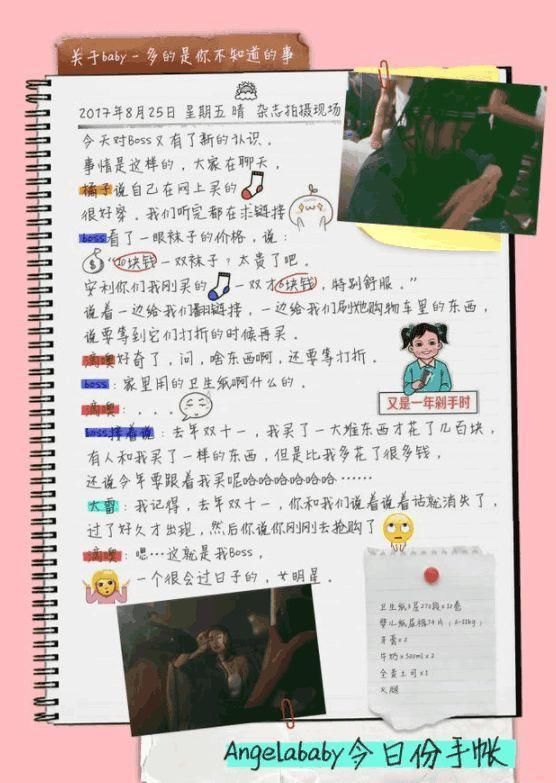 关于baby-多的是你不知道的事
2017年8月25日 星期五 晴 杂志拍摄现场
今天对Boss又有了新的认识。
事情是这样的，大家在聊天，
橘子说自己在网上买的
很好穿。我们听完都在求链接
boss看了一眼袜子的价格，说：
“10块钱一双袜子？太贵了吧。
安利你们我刚买的 一双才5块钱，特别舒服。”
说着一边给我们翻链接，一边给我们刷她购物车里的东西，
说要等到它们打折的时候再买。
滴噢好奇了，问，啥东西啊，还要等打折。
boss：家里用的卫生纸啊什么的。
滴噢：....
boss接着说：去年双十一，我买了一大堆东西才花了几百块，
有人和我买了一样的东西，但是比我多花了很多钱，
还说今年要跟着我买呢哈哈哈哈哈哈……
大雷：我记得，去年双十一，你和我们说着说着话就消失了，
过了好久才出现，然后你说你刚刚去抢购了
滴噢：嗯…这就是我Boss，
一个很会过日子的，女明星。
又是一年剁手时
卫生纸3层270段×10卷
牙膏×2
牛奶×500ml×2
全麦土司×1
火腿
Angelababy今日份手帐